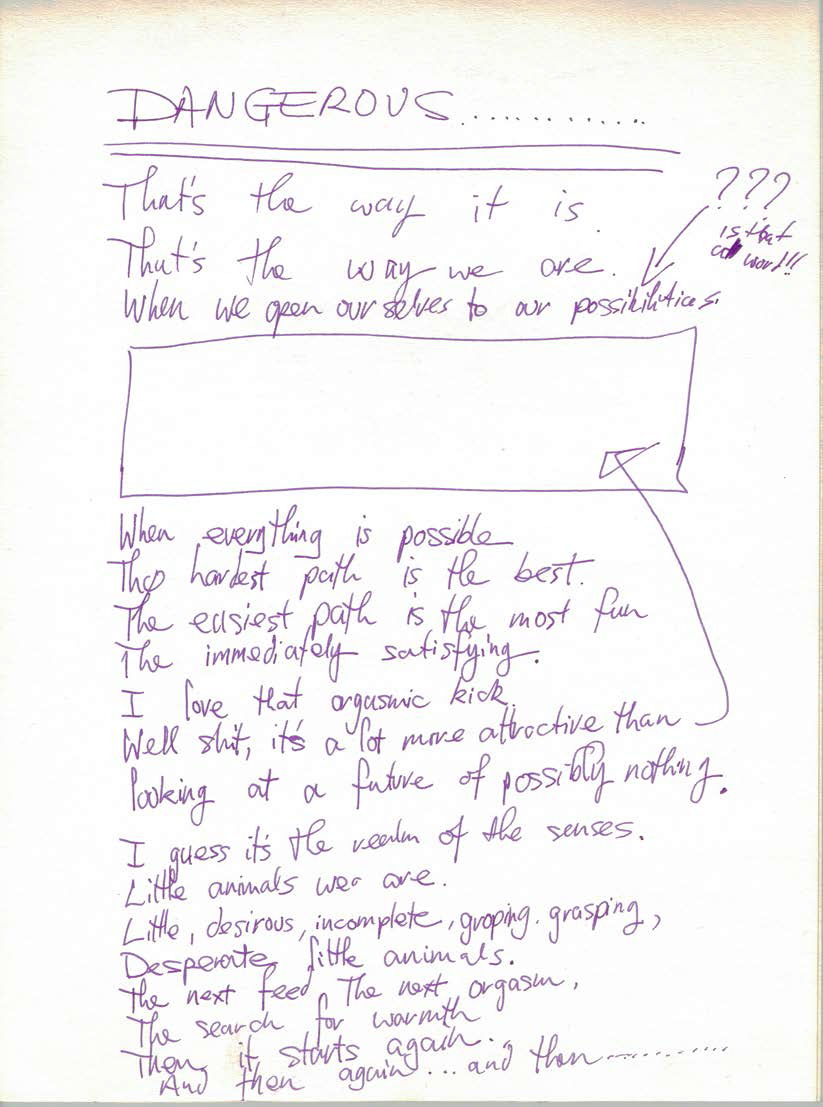 DANGEROUS............
That's the way it is.
???
is that a word!!
That's the way we are.
When we open ourselves to our possibilities.
When everything is possible
The hardest path is the best.
The easiest path is the most fun
The immediately satisfying.
I love that orgasmic kick.
Well shit, it's a lot more attractive than
looking at a future of possibly nothing.
I guess it's the realm of the senses.
Little animals we are.
Little, desirous, incomplete, groping. grasping,
Desperate little animals.
The next feed. The next orgasm,
The search for warmth
Then, it starts again..
And then again ... and then............